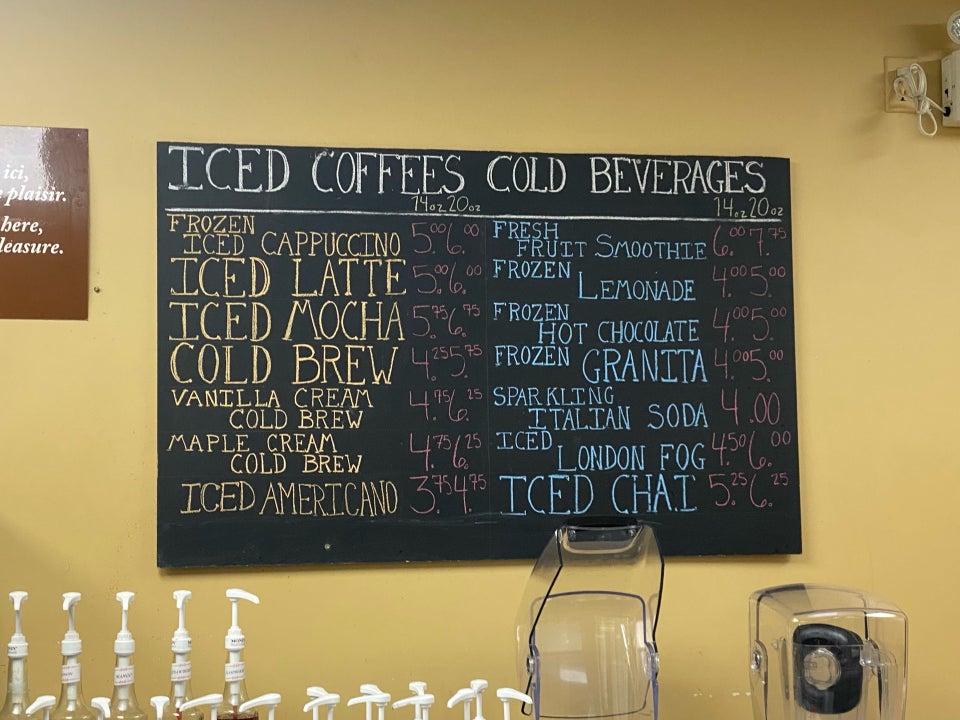 ici,
plaisir.
here,
leasure.
ICED COFFEES COLD BEVERAGES
14oz 20oz
14oz 20oz
FROZEN
ICED CAPPUCCINO 5.00 6.00
ICED LATTE 5.00 6.00
ICED MOCHA 5.75 6.75
COLD BREW 4.25 5.75
VANILLA CREAM
COLD BREW 4.75 6.25
MAPLE CREAM
COLD BREW 4.75 6.25
ICED AMERICANO 3.75 4.75
FRESH
FRUIT SMOOTHIE 6.00 7.75
FROZEN
LEMONADE 4.00 5.00
FROZEN
HOT CHOCOLATE 4.00 5.00
FROZEN GRANITA 4.00 5.00
SPARKLING
ITALIAN SODA 4.00
ICED
LONDON FOG 4.50 6.00
ICED CHAI 5.25 6.25